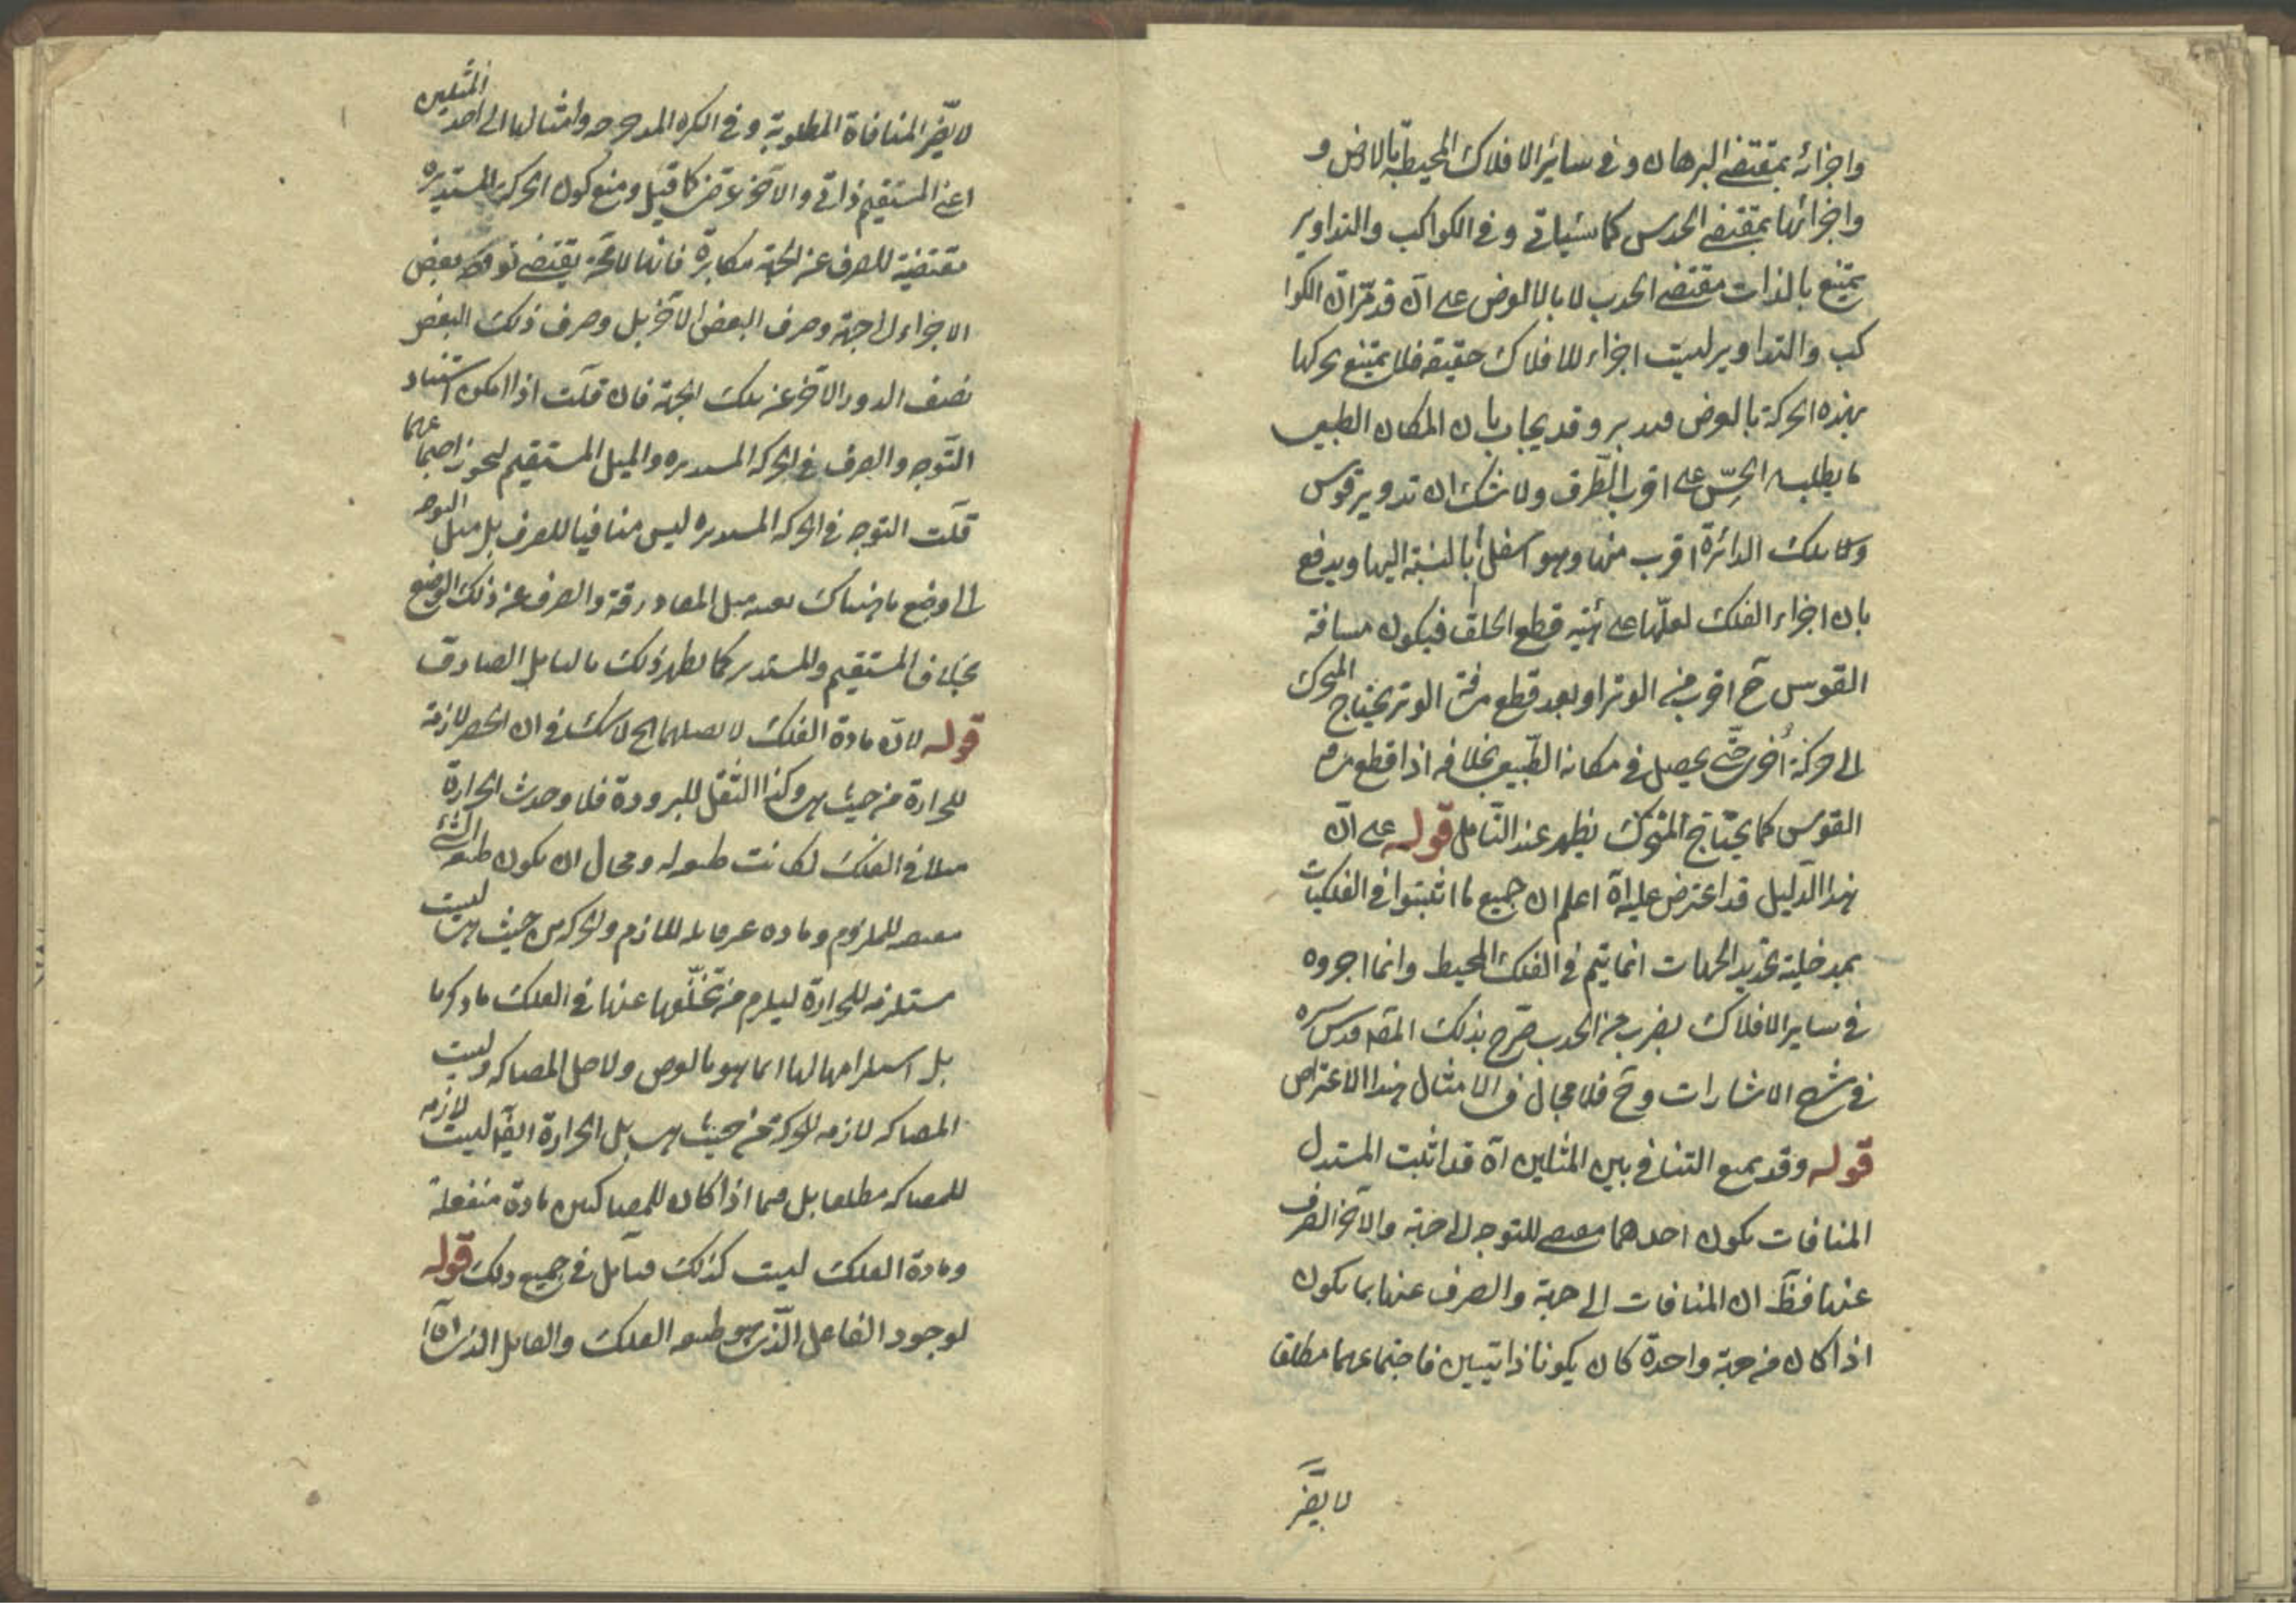 واجزائه بمقتضى البرهان وفى سائر الافلاك المحيطة بالارض و
واجزائها بمقتضى الحدس كما سياتى وفى الكواكب والتداوير
يمتنع بالذات مقتضى الحدس لا بالعرض على انه قد مر ان الكوا
كب والتداوير ليست اجزاء للافلاك حقيقة فلا يمتنع تحركها
بهذه الحركة بالعرض فتدبر وقد يجاب بان المكان الطبيعى
ما يطلبه على اقرب الطرق ولا شك ان تدوير قوس
الدائرة اقرب منها وهو اسفل بالنسبة اليها ويدفع
بان اجزاء الفلك لعلها على هيئة قطع الحلق فيكون مسافة
القوس ح اقرب من الوتر او بعد قطع مسافة الوتر يحتاج المتحرك
الى حركة اخرى حتى يحصل فى مكانه الطبيعى بخلافه اذا قطع
القوس كما يحتاج المتحرك يظهر عند التامل قوله على ان
هذا الدليل قد اعترض عليه اه اعلم ان جميع ما اثبتوا فى الفلكيات
بمدخلية تحديد الجهات انما يتم فى الفلك المحيط وانما اجروه
فى ساير الافلاك بضرب من الحدس صرح بذلك المحقق قدس سره
فى شرح الاشارات وح فلا مجال فى الامثال هذا الاعتراض
قوله وقد يمنع التنافى بين المثلين اه قد اثبت المستدل
المنافات بكون احدهما مقتضى للتوجه الى جهة والاخر الصرف
عنها فظ ان المنافات الى جهة والصرف عنها بما يكون
اذا كان من جهة واحدة كان يكونا ذاتيين فاجتماعهما مطلقا
لا يضر
لا يضر المنافاة المطلوبة وفى الكره المدحرجه وامثالها الى احد المثلين
اعنى المستقيم ذاتى والاخر عرضى كما قيل ومنع كون الحركة المستديره
مقتضية للصرف عن الجهة مكابرة فانها لا محة يقتضى توجه بعض
الاجزاء الى جهة وصرف البعض الاخر بل وصرف ذلك البعض
نصف الدور الاخر عن تلك الجهة فان قلت اذا امكن استناد
التوجه والصرف فى الحركه المستديره والميل المستقيم ليجوز اجتماعهما
قلت التوجه فى الحركه المستديره ليس منافيا للصرف بل التوجه
الى وضع ما هناك المفارقة والصرف عن ذلك الوضع
بخلاف المستقيم والمستدير كما يظهر ذلك بالتامل الصادق
قوله لان مادة الفلك لا اه لا شك فى ان الخفة لازمة
للحرارة من حيث هى وكذا الثقل للبرودة فلو حدث الحرارة
مثلا فى الفلك لكانت طبيعته ومحال ان يكون طبيعة الشئ
مقتضيه للملزوم ومادته غير قابله لللازم والحركه من حيث هى ليست
مستلزمه للحرارة ليلزم من تخلفها عنها فى الفلك ما ذكرنا
بل استلزامها لها انما هو بالعرض ولاجل المصاكه وليست
المصاكه لازمه للحركة من حيث هى بل الحرارة ايضا ليست لازمه
للمصاكه مطلقا بل فيما اذا كان للمصاكين مادة منفعلة
ومادة الفلك ليست كذلك فتامل فى جميع ذلك قوله
لوجود الفاعل الذى هو طبيعة الفلك والقابل الذى